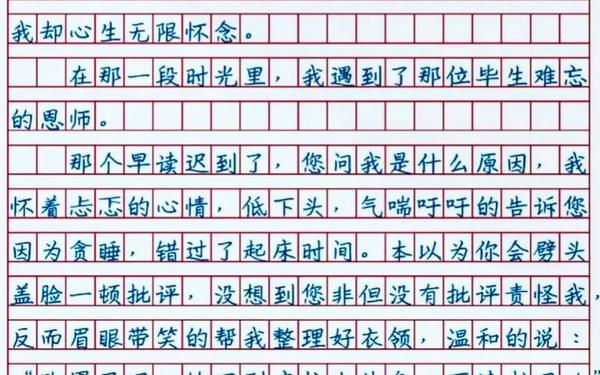 我却心生无限怀念。
在那一段时光里，我遇到了那位毕生难忘
的恩师。
那个早读迟到了，您问我是什么原因，我
怀着忐忑的心情，低下头，气喘吁吁的告诉您
因为贪睡，错过了起床时间。本以为你会劈头
盖脸一顿批评，没想到您非但没有批评责怪我，
反而眉眼带笑的帮我整理好衣领，温和的说：